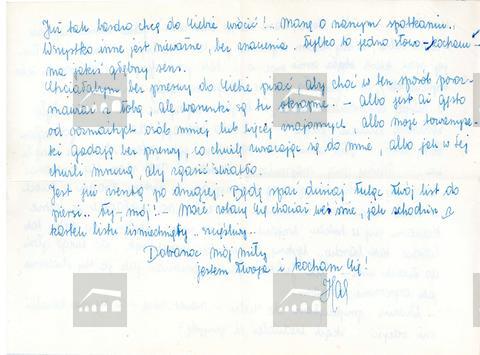 Już tak bardzo chcę do Ciebie wrócić!.. Marzę o naszym spotkaniu..
Wszystko inne jest nieważne, bez znaczenia. Tylko to jedno słowo - kocham -
ma jakiś głębszy sens.
Chciałabym bez przerwy do Ciebie pisać, aby choć w ten sposób poroz-
mawiać z Tobą, ale warunki są tu okropne. - albo jest aż gęsto
od rozmaitych osób mniej lub więcej znajomych, albo moje towarzysz-
ki gadają bez przerwy, co chwilę zwracając się do mnie, albo jak w tej
chwili mruczą, aby zgasić światło.
Jest już zresztą po drugiej. Będę spać dzisiaj tuląc Twój list do
piersi.. Ty - mój!.. Może zobaczę Cię chociaż we śnie, jak schodzisz z
kartek listu uśmiechnięty..
Dobranoc mój miły
jestem Twoja i kocham Cię.
Hal